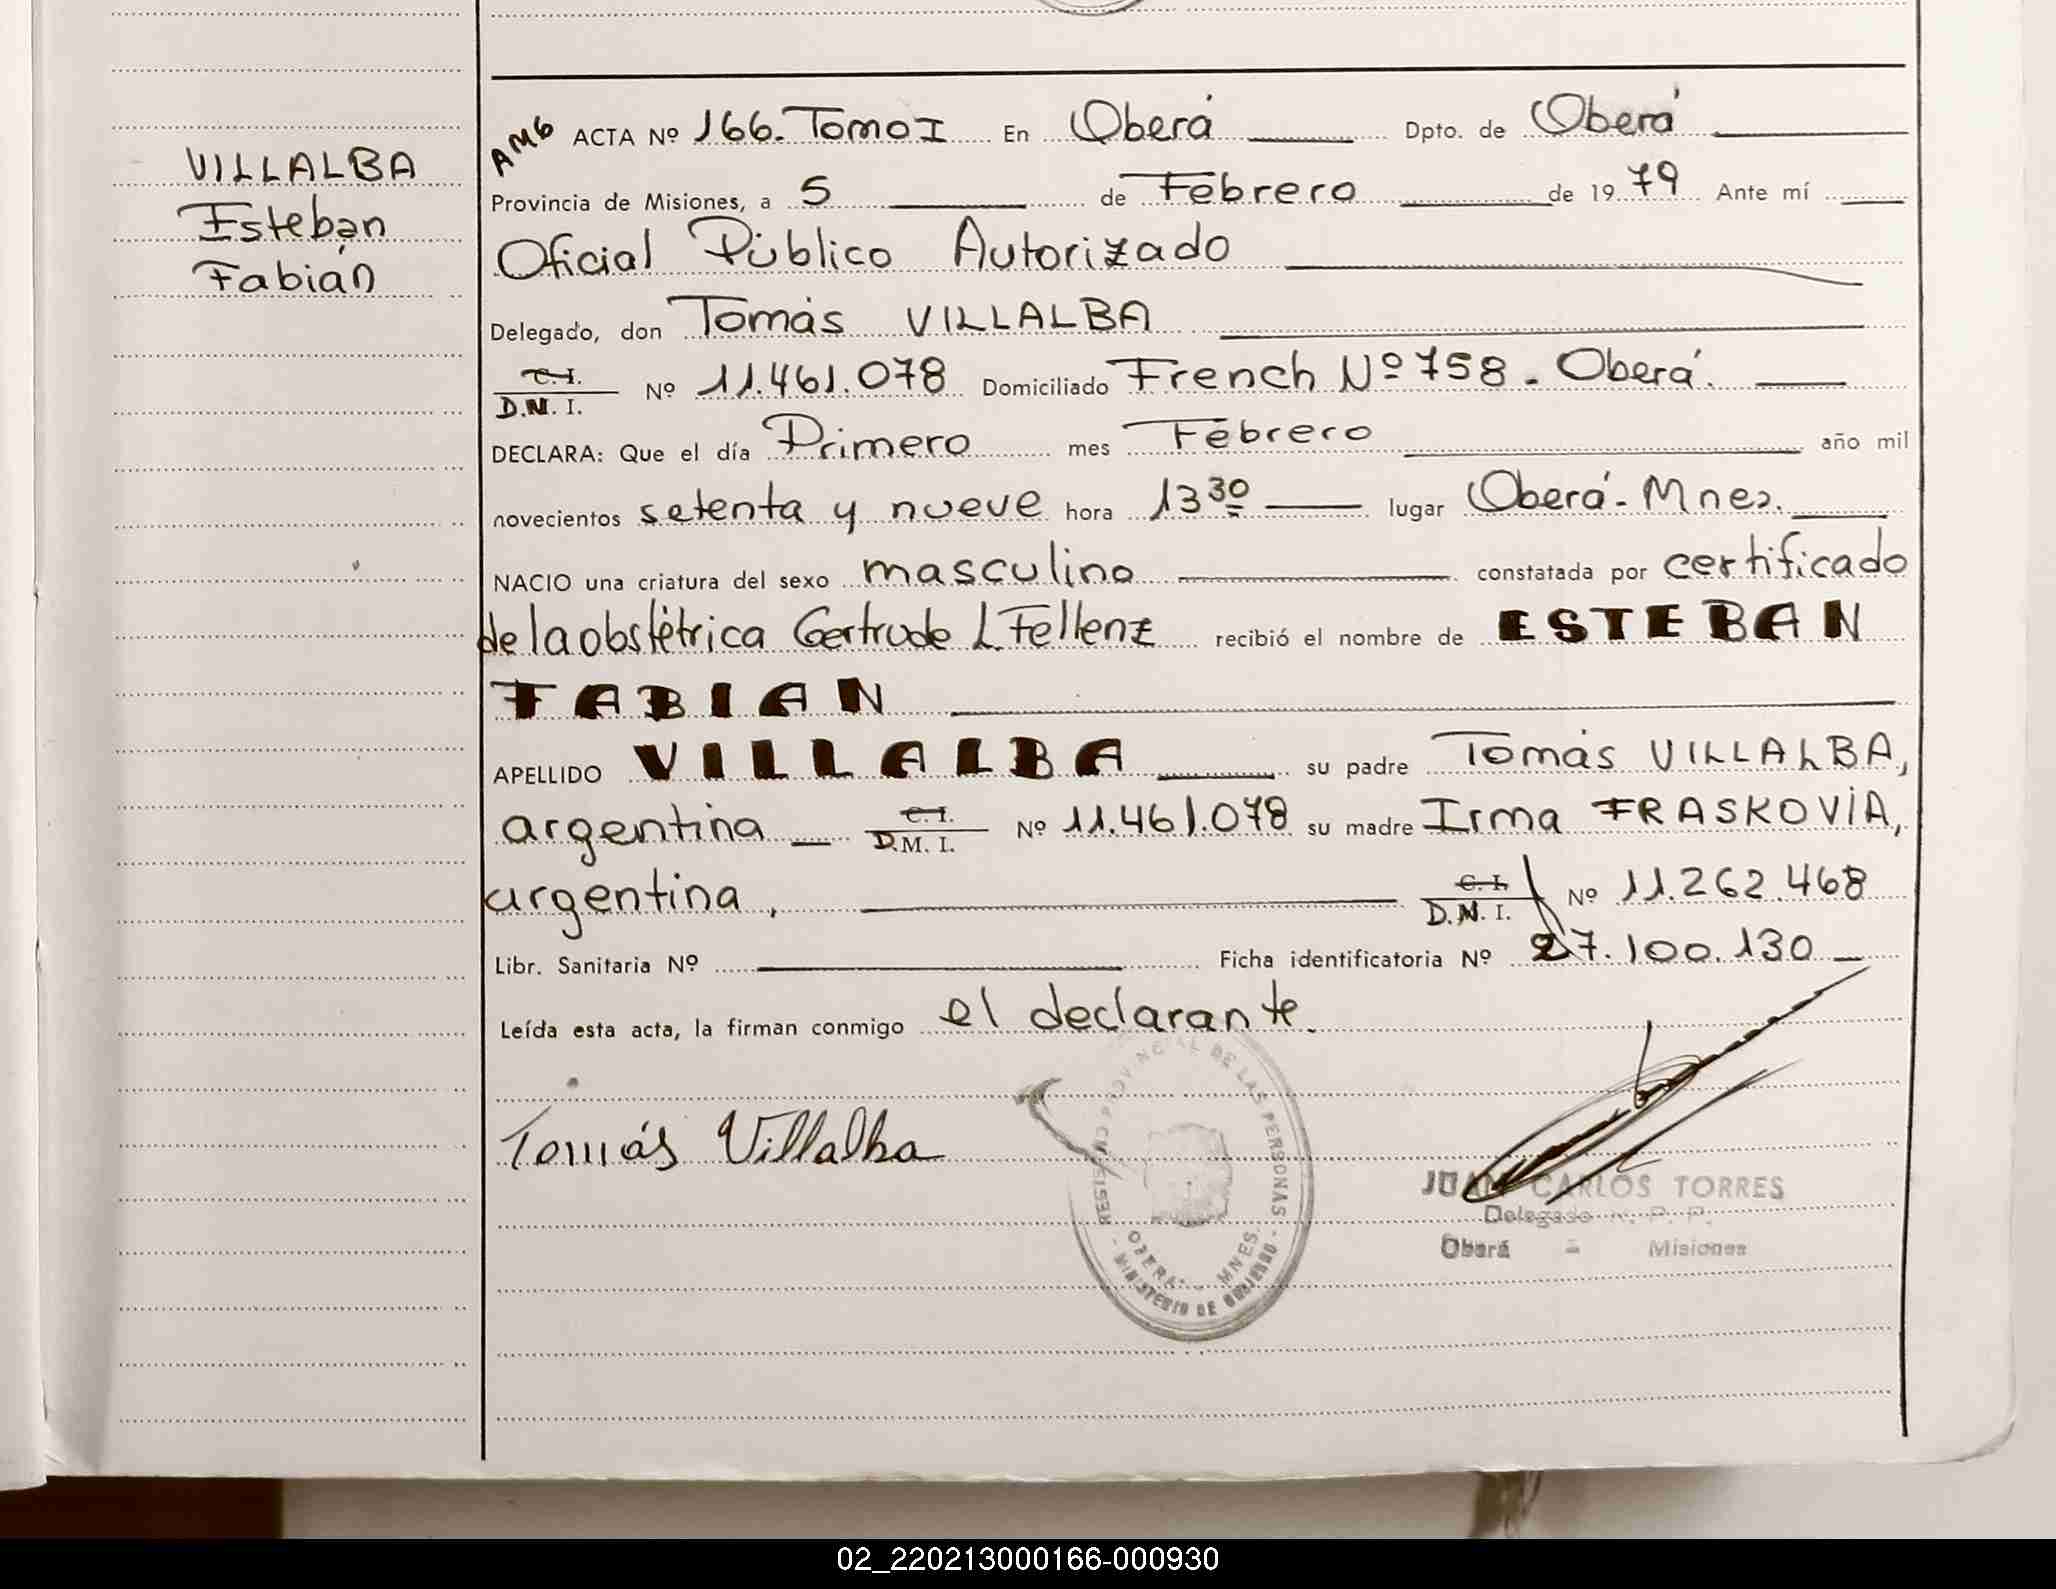 VILLALBA
Esteban
Fabián
AMG ACTA Nº 166. Tomo I En Oberá Dpto. de Oberá
Provincia de Misiones, a 5 de Febrero de 1979 Ante mí
Oficial Público Autorizado
Delegado, don Tomás VILLALBA
C. I.
D.N. I. Nº 11.461.078 Domiciliado French Nº 758 - Oberá.
DECLARA: Que el día Primero mes Febrero año mil
novecientos setenta y nueve hora 13 30 lugar Oberá - Mnes.
NACIO una criatura del sexo masculino constatada por certificado
de la obstétrica Gertrude L. Fellenz recibió el nombre de ESTEBAN
FABIAN
APELLIDO VILLALBA su padre Tomás VILLALBA,
argentina C. I.
D.M. I. Nº 11.461.078 su madre Irma FRASKOVIA,
argentina, C. I.
D.N. I. Nº 11.262.468
Libr. Sanitaria Nº Ficha identificatoria Nº 27.100.130
Leída esta acta, la firman conmigo el declarante.
Tomás Villalba
PROVINCIAL DE LAS PERSONAS
OBERA - MNES.
- MINISTERIO DE GOBIERNO -
JUAN CARLOS TORRES
Delegado R. P. P.
Oberá - Misiones
02_220213000166-000930